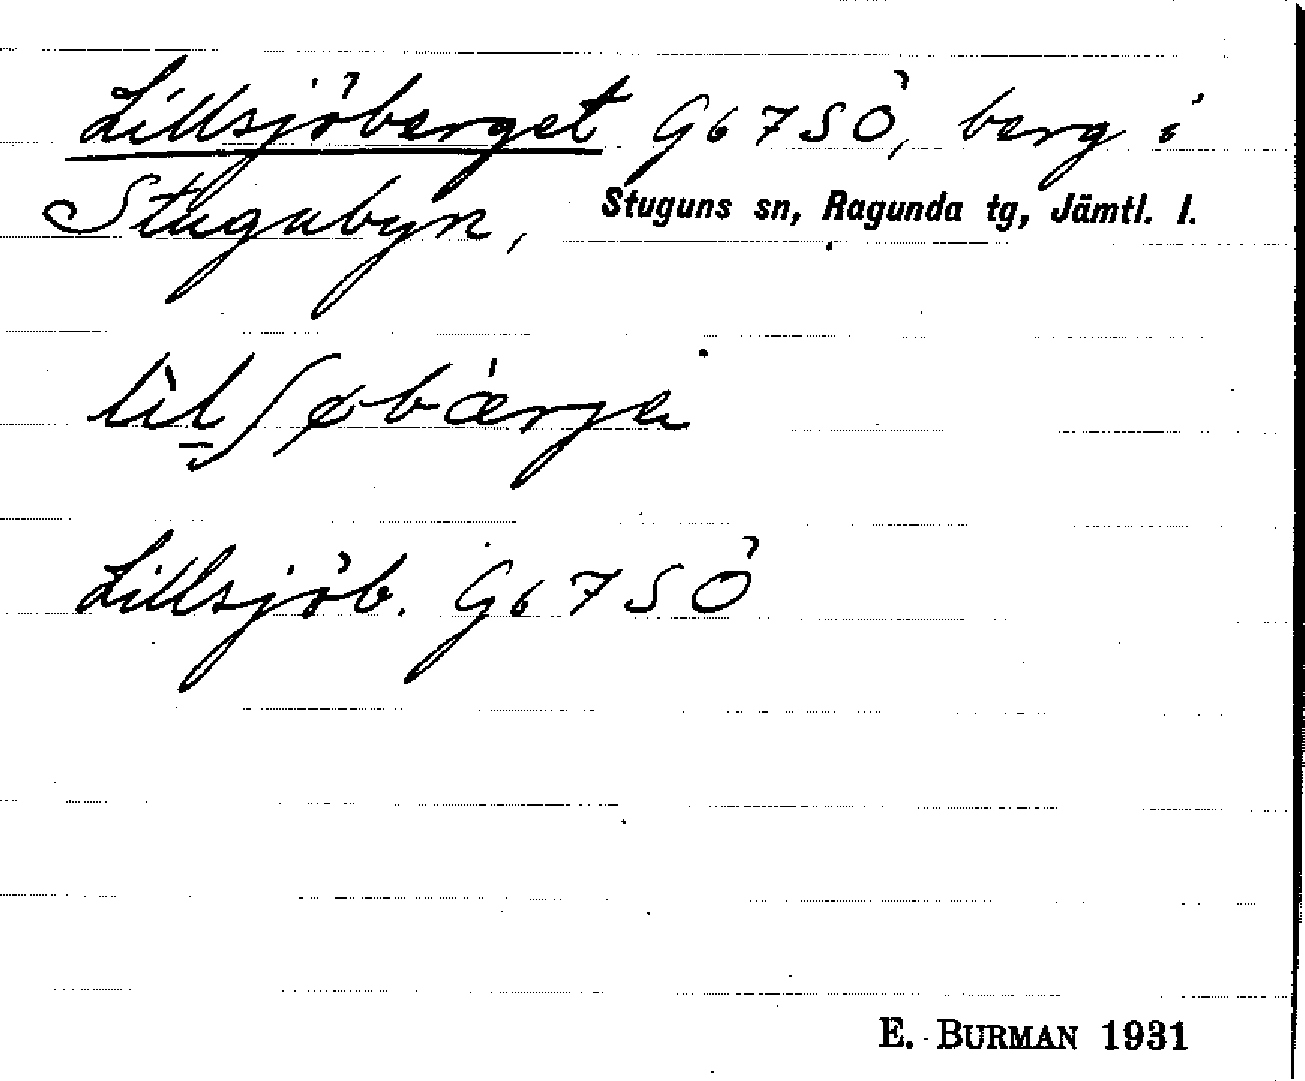 Lillsjöberget G67SÖ, berg i
Stugubyn, Stuguns sn, Ragunda tg, Jämtl. l.
lìlʃøbárjɐ
Lillsjöb. G67SÖ
E. BURMAN 1931